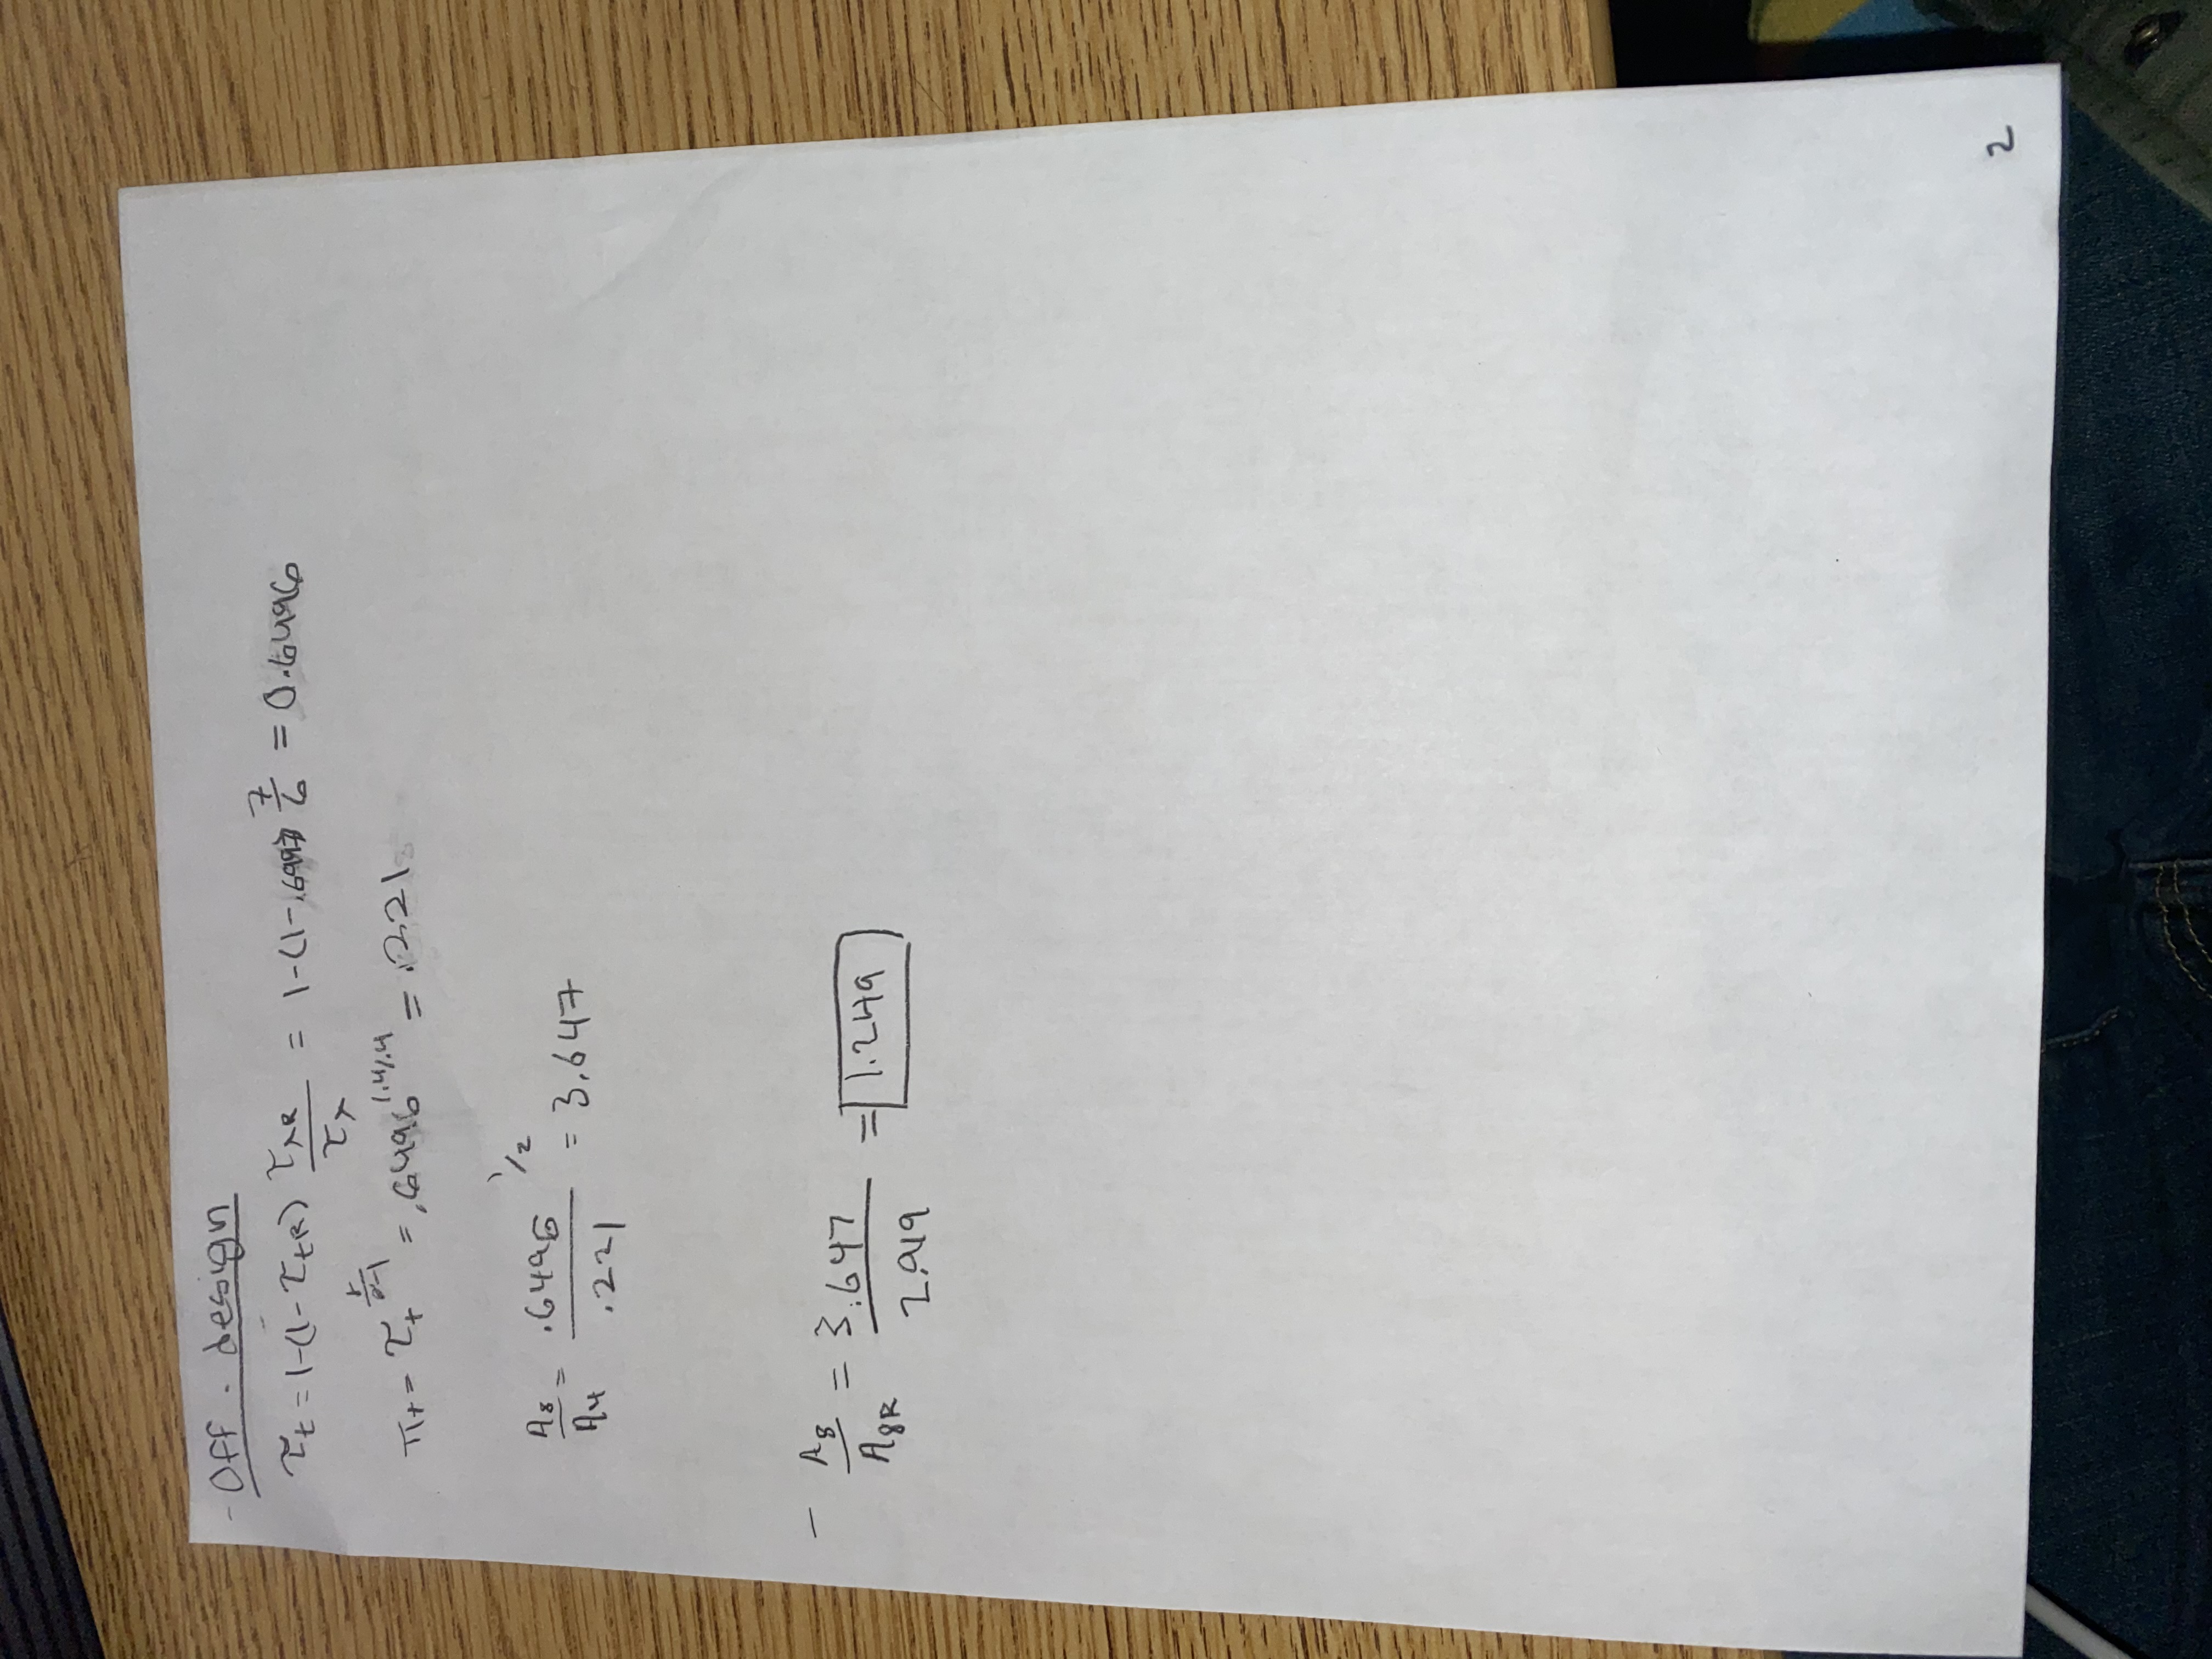 - Off-design
τt = 1-(1-τtR) τλR/τλ = 1-(1-.6997) 7/6 = 0.6496
πt = τt^γ/γ-1 = .6496^1.4/.4 = .221
A8/A4 = .6496^1/2/.221 = 3.647
- A8/A8R = 3.647/2.919 = 1.249
2